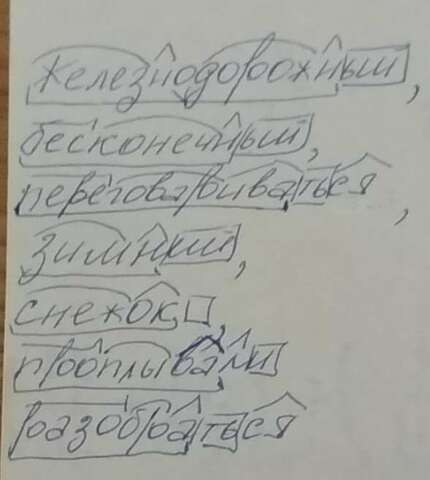 железнодорожный,
бесконечный,
переговариваться,
зимний,
снежок,
проплывали
разобраться